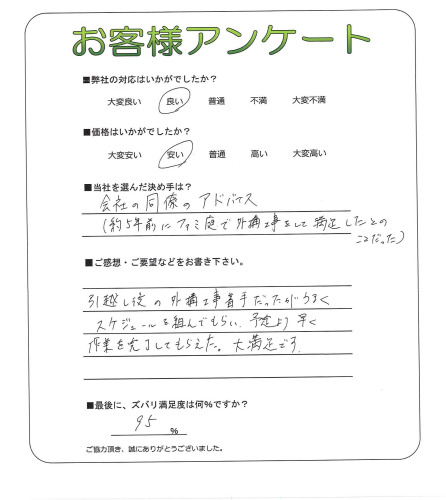 お客様アンケート
■弊社の対応はいかがでしたか？
大変良い 良い 普通 不満 大変不満
■価格はいかがでしたか？
大変安い 安い 普通 高い 大変高い
■当社を選んだ決め手は？
会社の同僚のアドバイス
(約5年前にファミ庭で外構工事をして満足したとの
ことだった)
■ご感想・ご要望などをお書き下さい。
引越し後の外構工事着手だったがうまく
スケジュールを組んでもらい、予定より早く
作業を完了してもらえた。大満足です。
■最後に、ズバリ満足度は何%ですか？
95 %
ご協力頂き、誠にありがとうございました。